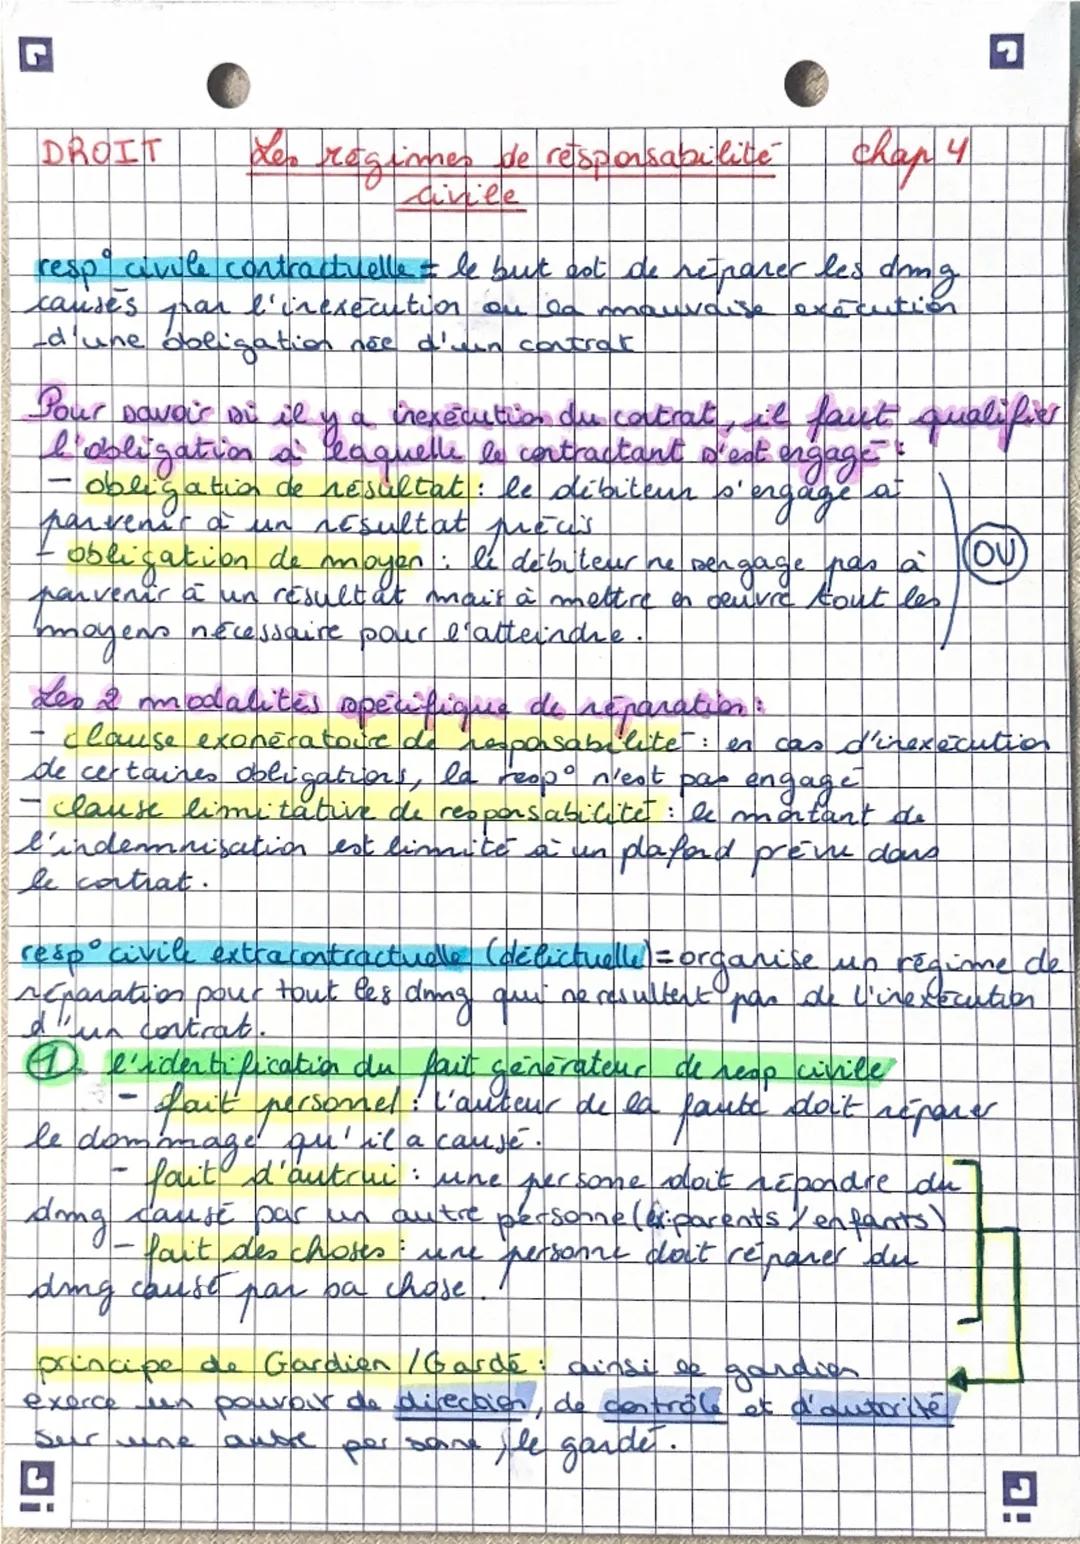 DROIT Les régimes de responsabilité chap 4
civile
resp° civile contractuelle = le but est de réparer les dmg
causés par l'inexécution ou la mauvaise exécution
d'une obligation née d'un contrat
Pour savoir si il y a inexécution du contrat, il faut qualifier
l'obligation à laquelle le contractant s'est engagé :
- obligation de résultat : le débiteur s'engage à
parvenir à un résultat précis
- obligation de moyen : le débiteur ne s'engage pas à
parvenir à un résultat mais à mettre en oeuvre tout les
moyens nécessaire pour l'atteindre.
OU
Les 2 modalités spécifique de réparation :
- clause exonératoire de responsabilité : en cas d'inexécution
de certaines obligations, la resp° n'est pas engagé
- clause limitative de responsabilité : le montant de
l'indemnisation est limité à un plafond prévu dans
le contrat.
resp° civile extracontractuelle (délictuelle) = organise un régime de
réparation pour tout les dmg qui ne resultent pas de l'inexécution
d'un contrat.
1. l'identification du fait générateur de resp civile
- fait personnel : l'auteur de la faute doit réparer
le dommage qu'il a causé.
- fait d'autrui : une personne doit répondre du
dmg causé par un autre personne (ex: parents / enfants)
- fait des choses : une personne doit réparer du
dmg causé par sa chose.
principe de Gardien / Gardé : ainsi le gardien
exerce un pouvoir de direction, de contrôle et d'autorité
sur une autre personne, le gardé.